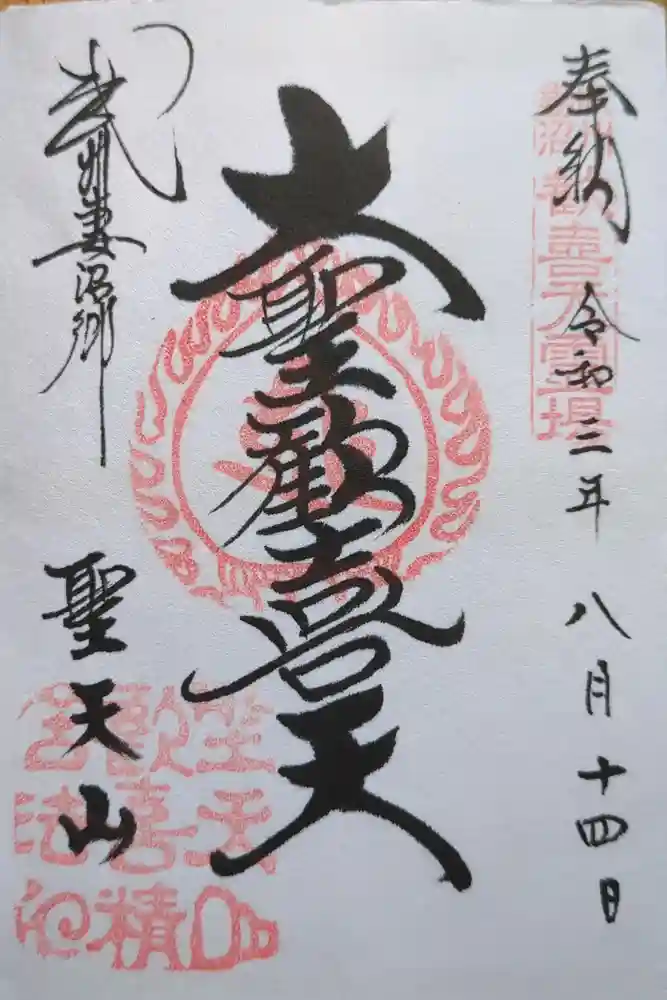 奉納 令和三年 八月十四日
大聖歓喜天
武州妻沼郷
聖天山
歓喜天霊場